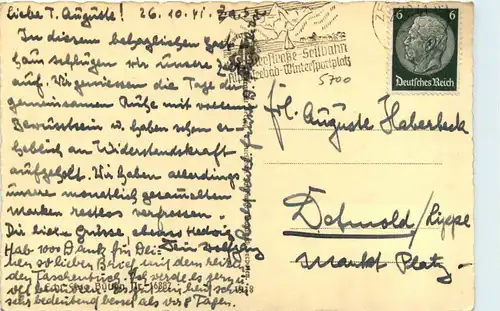 Liebe T. Auguste! 26.10.41.
In diesem behaglichen Gast-
haus schlugen wir unsere Zelte
auf. Wir geniessen die Tage der
gemeinsamen Ruhe mit vollem
Bewusstsein u. haben schon er-
heblich an Widerstandskraft
aufgeholt. Wir haben allerdings
unsere monatlich gesammelten
Marken restlos verfressen.
Die lieben Grüsse ebenso Hedwig
Dein Wolfgang
Hab 1000 Dank für Dei-
nen so lieben Brief mit dem
Taschentuch. Ich werde es
sehr bedeutend besser als vor 8 Tagen.
Seilbahn
Wintersportplatz
5700
6 6
Deutsches Reich
Frl. Auguste Haberbeck
Detmold/Lippe
Markt Platz